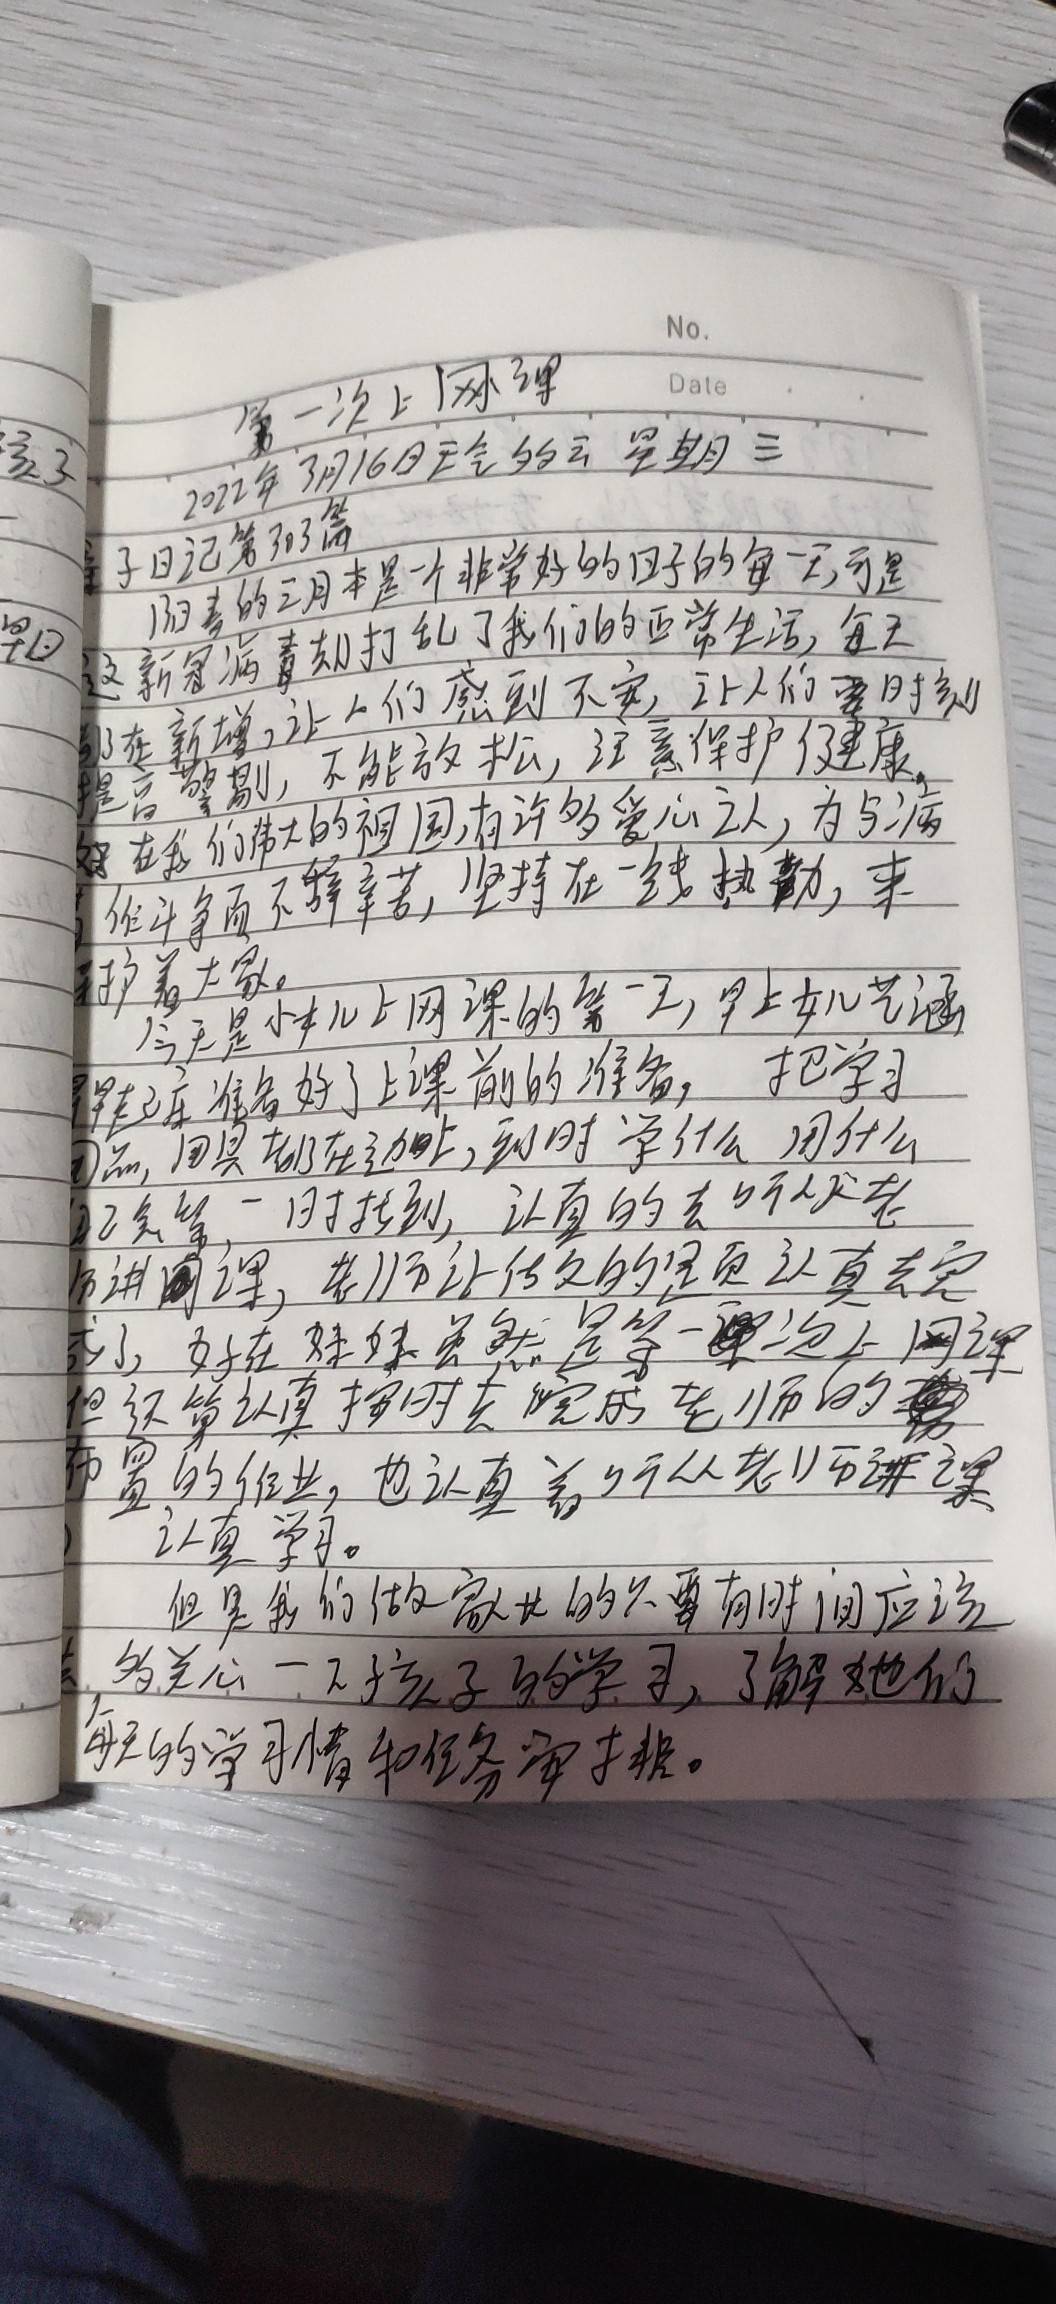 孩子
早日
No.
Date
第一次上网课
2022年3月16日天气多云 星期三
亲子日记第303篇
阳春的三月本是一个非常好的日子的每一天,可是
这新冠病毒却打乱了我们的正常生活,每天
都在新增,让人们感到不安,让人们要时刻
提高警剔,不能放松,注意保护健康。
好在我们伟大的祖国,有许多爱心之人,为与病
作斗争而不辞辛苦,坚持在一线执勤,来
护着大家。
今天是女儿上网课的第一天,早上女儿艺涵
早早起床准备好了上课前的准备, 把学习
用品,用具都在边上,到时学什么 用什么
第一时找到,认真的去听从老
师讲课,老师让做的 认真去完
成了,好在妹妹虽然是第一次上网课
但 认真按时去完成老师的
布置的作业,也认真着听从老师讲课
认真学习。
但是我们做家长的只要有时间应该
去多关心一下孩子的学习,了解她们
每天的学习情和任务安排。